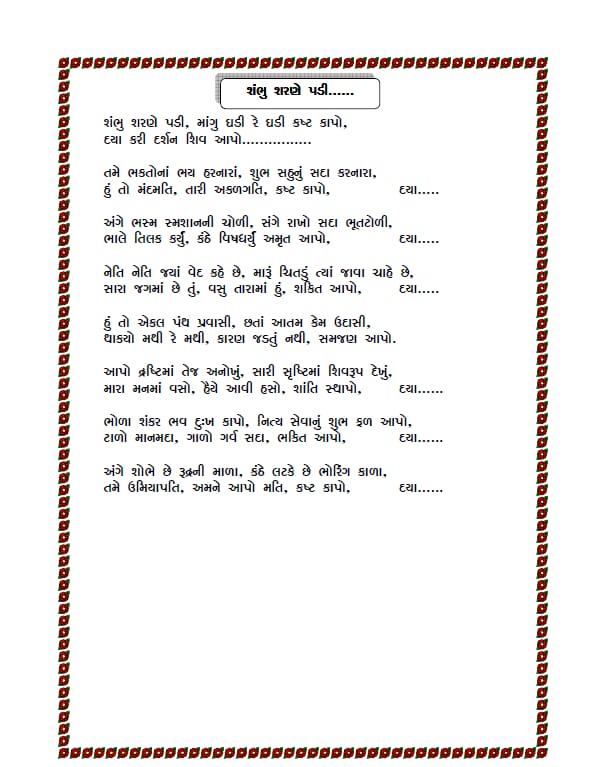 શંભુ શરણે પડી......
શંભુ શરણે પડી, માંગુ ઘડી રે ઘડી કષ્ટ કાપો,
દયા કરી દર્શન શિવ આપો................
તમે ભક્તોનાં ભય હરનારાં, શુભ સહુનું સદા કરનારા,
હું તો મંદમતિ, તારી અકળગતિ, કષ્ટ કાપો, દયા.....
અંગે ભસ્મ સ્મશાનની ચોળી, સંગે રાખો સદા ભૂતટોળી,
ભાલે તિલક કર્યું, કંઠે વિષધર્યું અમૃત આપો, દયા.....
નેતિ નેતિ જ્યાં વેદ કહે છે, મારૂં ચિતડું ત્યાં જાવા ચાહે છે,
સારા જગમાં છે તું, વસુ તારામાં હું, શક્તિ આપો, દયા.....
હું તો એકલ પંથ પ્રવાસી, છતાં આતમ કેમ ઉદાસી,
થાક્યો મથી રે મથી, કારણ જડતું નથી, સમજણ આપો.
આપો દ્રષ્ટિમાં તેજ અનોખું, સારી સૃષ્ટિમાં શિવરૂપ દેખું,
મારા મનમાં વસો, હૈયે આવી હસો, શાંતિ સ્થાપો, દયા......
ભોળા શંકર ભવ દુઃખ કાપો, નિત્ય સેવાનું શુભ ફળ આપો,
ટાળો માનમદા, ગાળો ગર્વ સદા, ભક્તિ આપો, દયા......
અંગે શોભે છે રૂદ્રની માળા, કંઠે લટકે છે ભોરિંગ કાળા,
તમે ઉમિયાપતિ, અમને આપો મતિ, કષ્ટ કાપો, દયા......